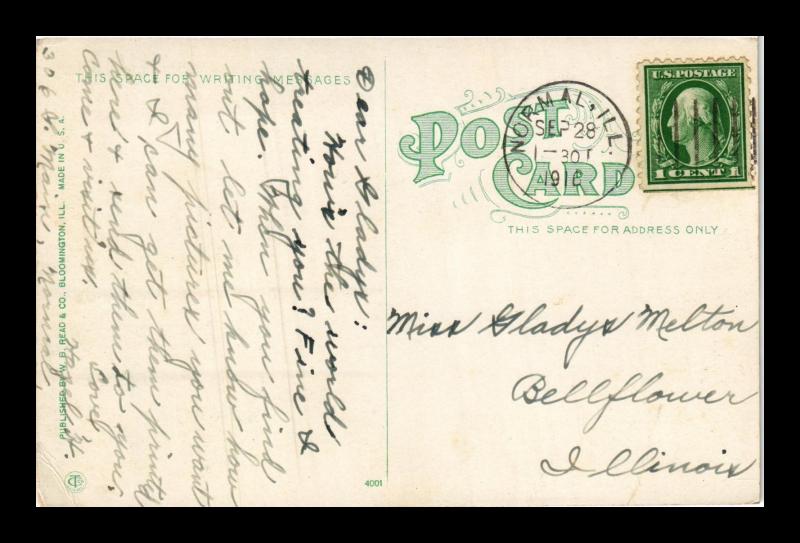 THIS SPACE FOR WRITING MESSAGES
Dear Gladys:
How's the world
treating you? Fine I
hope. When you find
out let me know how
many pictures you want
& I can get them printed
here & send them to you.
Come & visit us.
Love,
Hazel
306 N Main, Normal
PUBLISHED BY W. B. READ & CO., BLOOMINGTON, ILL. MADE IN U. S. A.
CT
4001
POST
CARD
THIS SPACE FOR ADDRESS ONLY
NORMAL, ILL.
SEP 28
1-30
191
U.S. POSTAGE
1 CENT 1
Miss Gladys Melton
Bellflower
Illinois